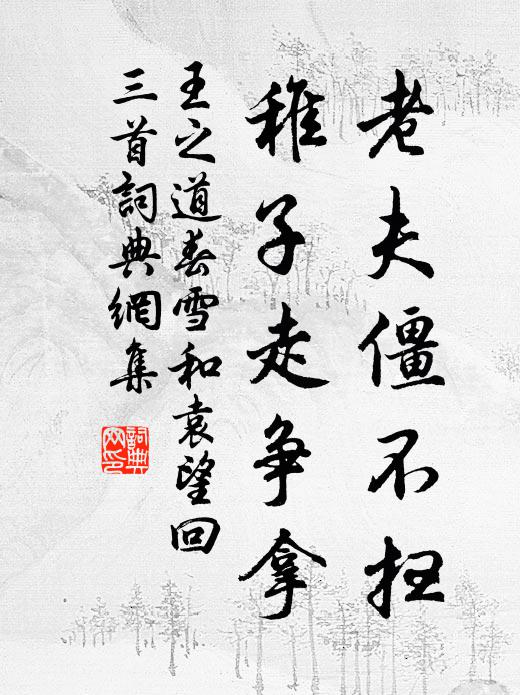 老夫僵不扭
稚子走争拿
王之道春雪和袁望回
三首詞典網集
詞典
网印